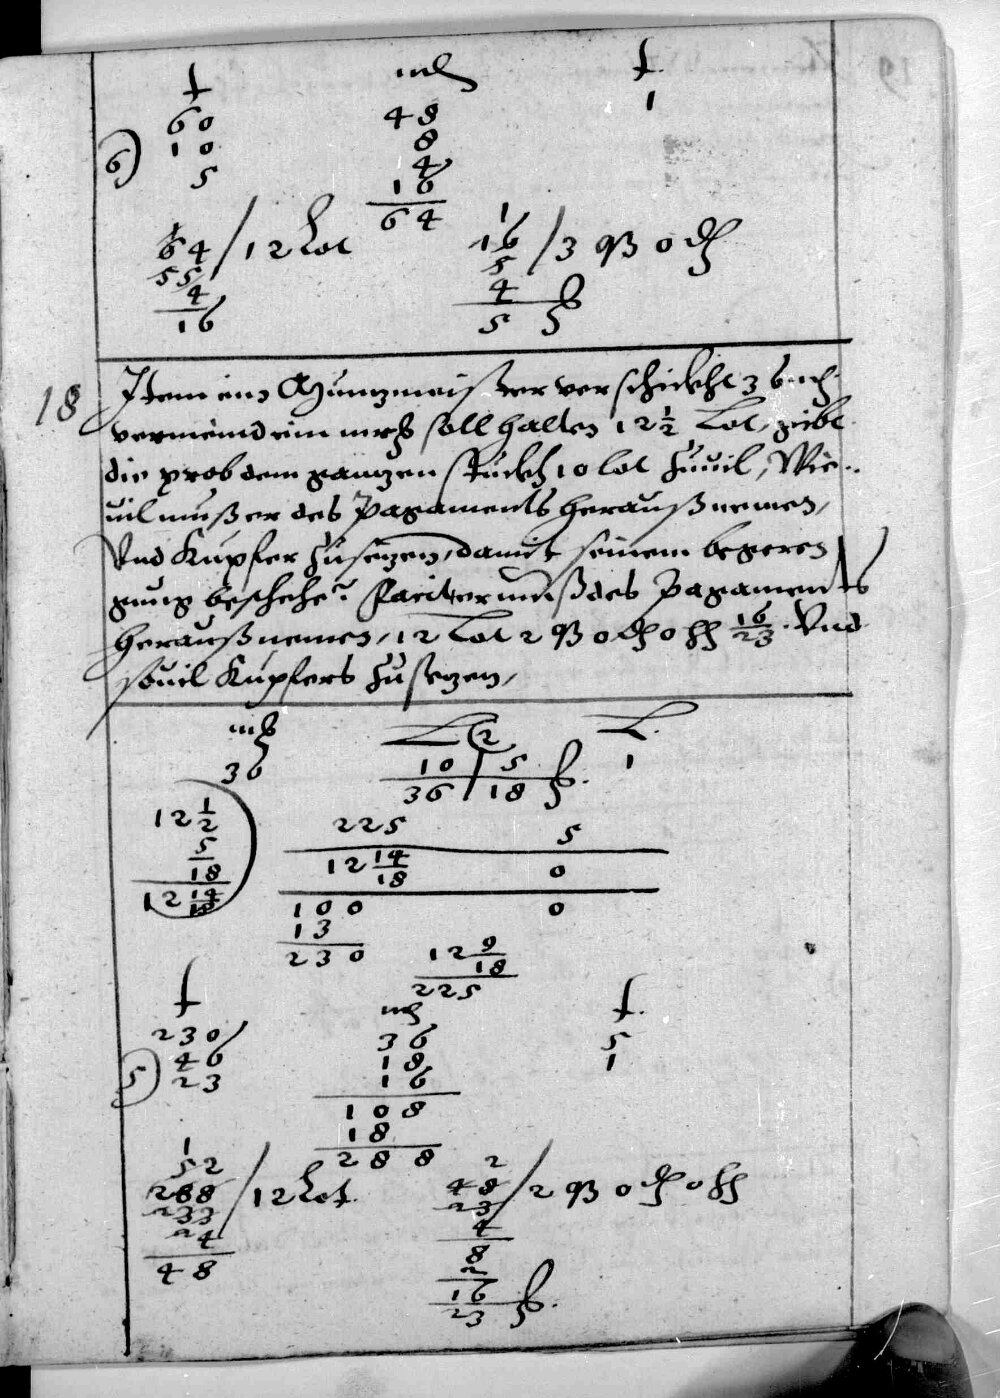 f mß f.
60 48 1
6) 10 8
5 4
16
64
64 / 12 Lot 16 / 3 q3 0 ₰
55 5
4 4
16 5 ß
18 Item ein Müntzmeister verschickht 36 mß
vermeind ein mrß soll halten 12 1/2 Lot, gibt
die prob dem gantzen stückh 10 lot zuvil, Wie
vil muß er des Pagaments herauß nemen,
Und Kupfer zusetzen, damit seinem begeren
gnug beschehe? Facit er muß des Pagaments
herauß nemen, 12 Lot 2 q3 0 ₰ 0 hh 16/23. Und
souil Kupfers zusetzen,
mß L (2 L.
36 10 | 5 1
36 | 18 ß.
12 1/2 225 5
5/18 12 14/18 0
12 14/18 100 0
13
230 12 9/18
225
f mß f.
230 36 5
5) 46 18 1
23 16
108
18
288
1 2
52
288 / 12 Lot. 48 / 2 q3 0 ₰ 0 hh
233 23
24 4
48 8
2
16
23 ß.